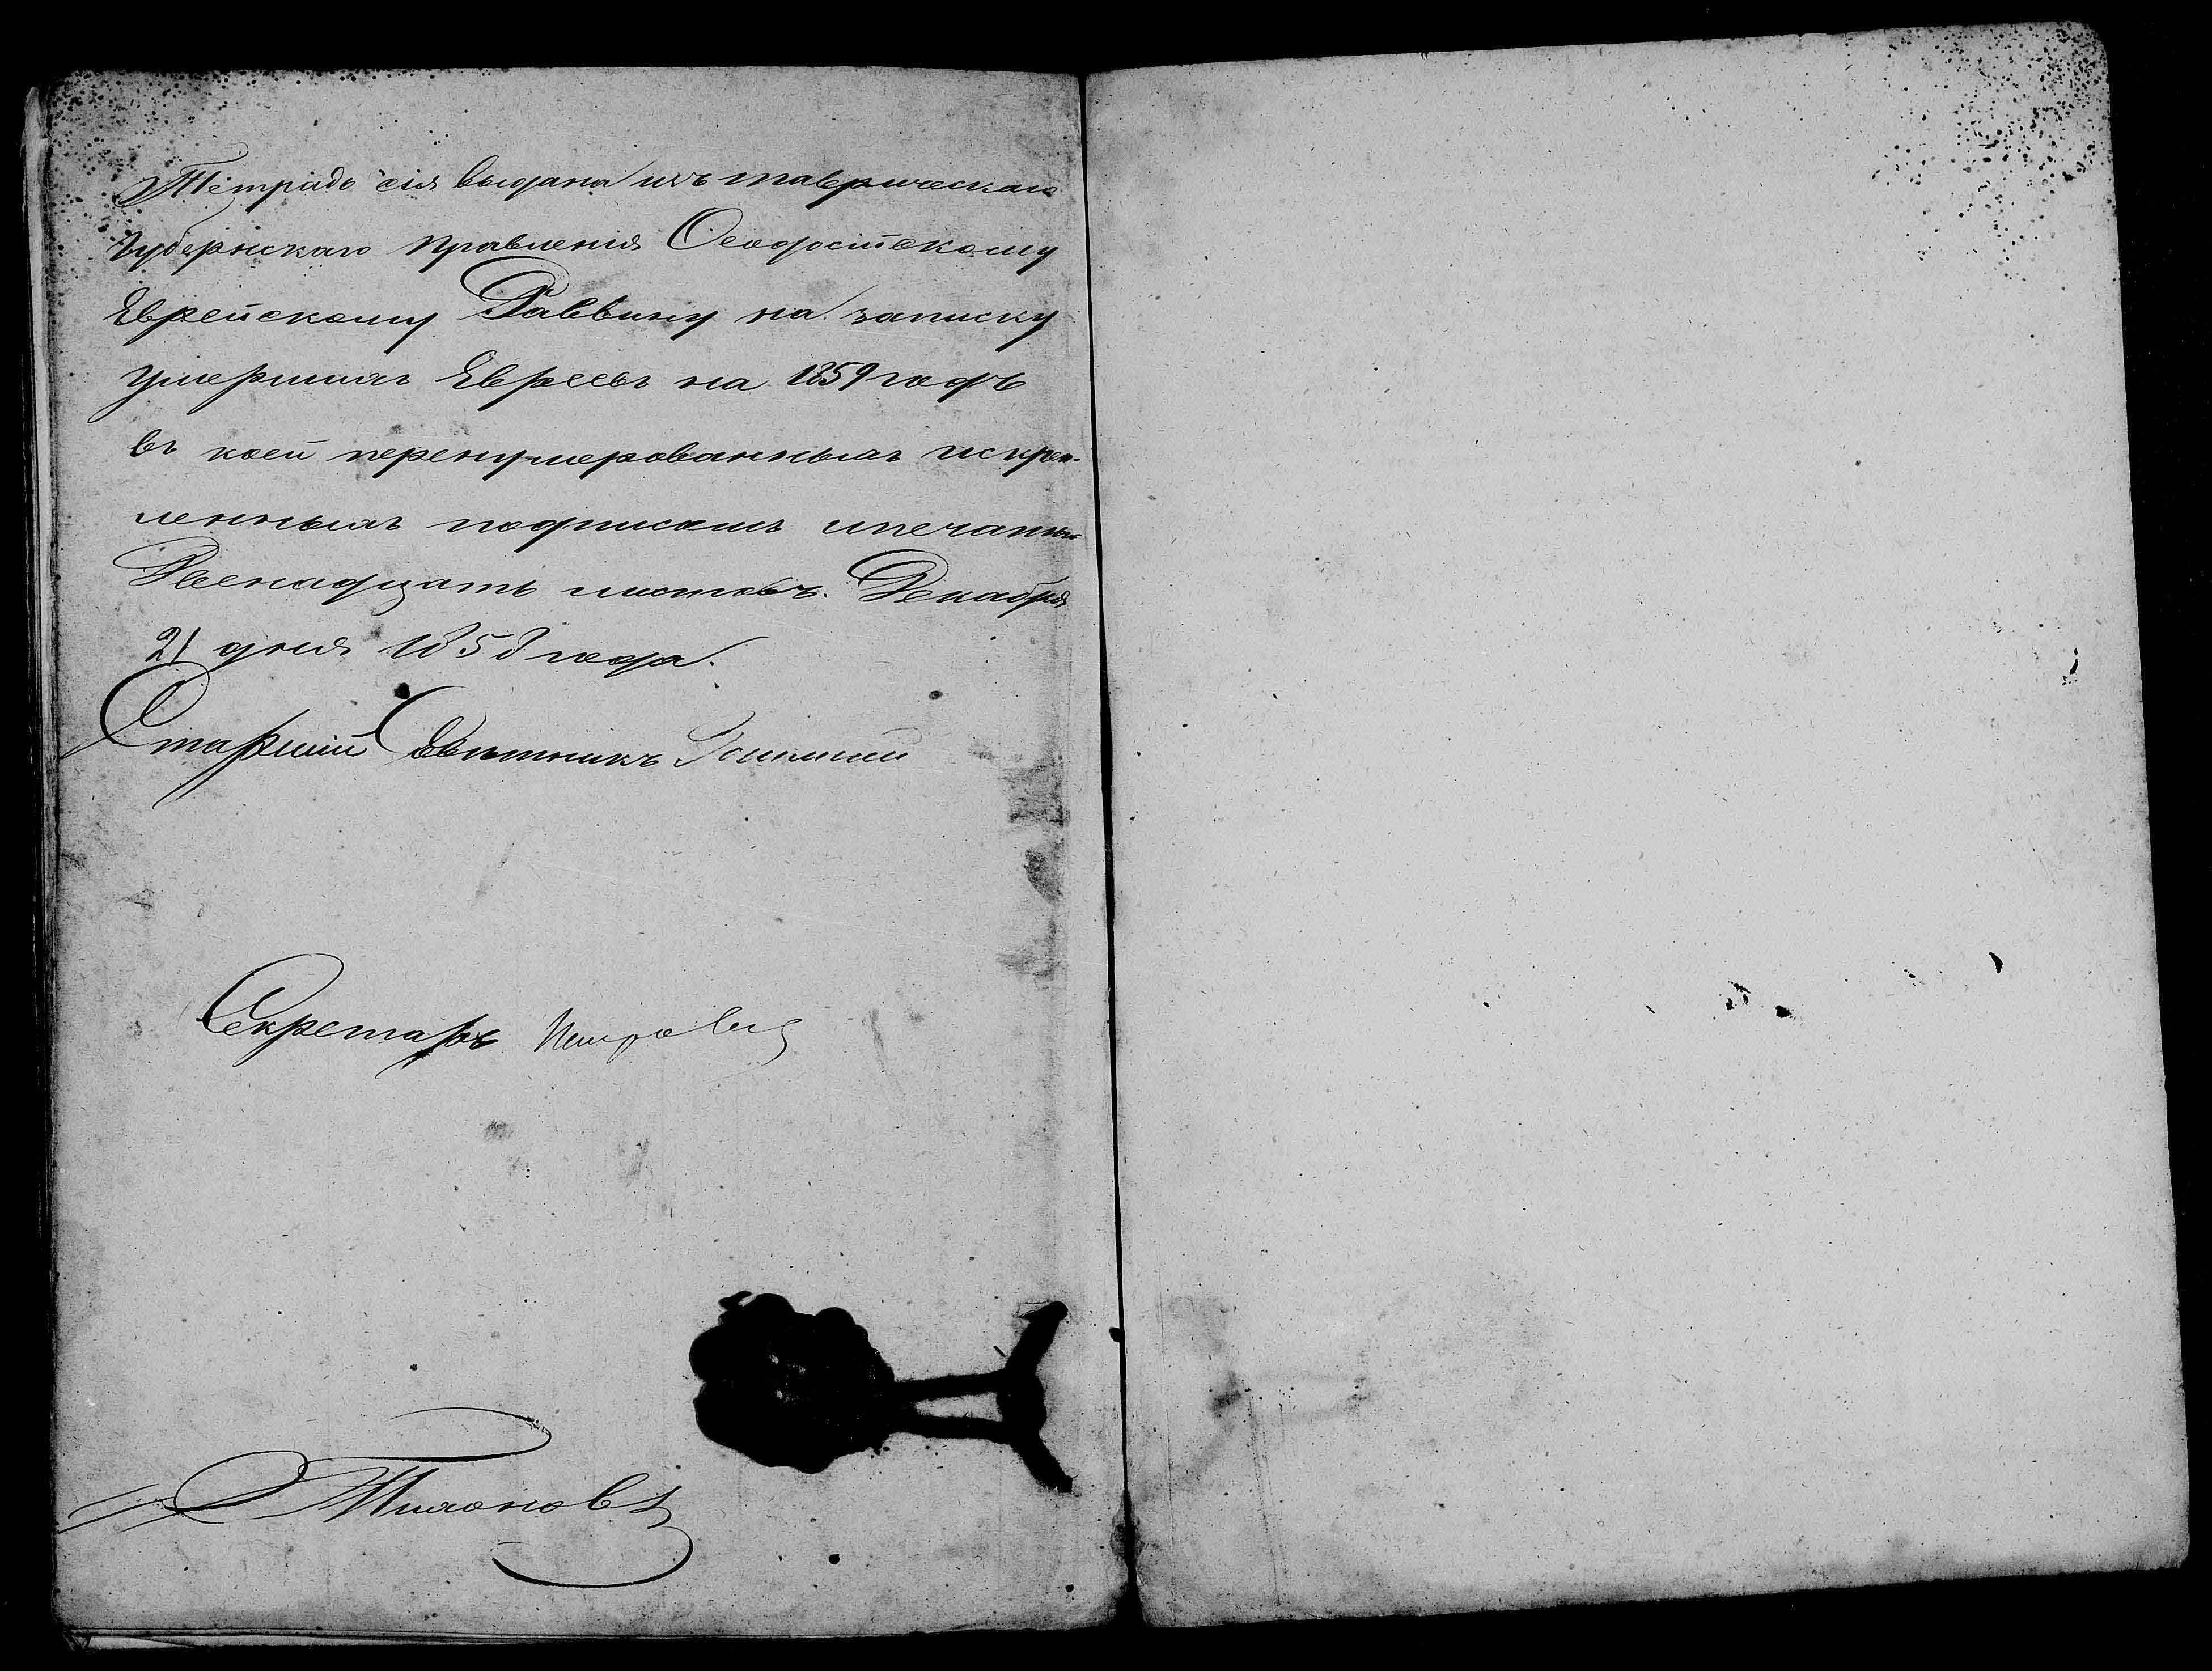 Тетрадь сія выдана изъ таврическаго
Губернскаго правленія Ѳеодосійскому
Еврейскому Раввину на записку
умершихъ Евреевъ на 1859 годъ
въ коей перенумерованныхъ искреп-
ленныхъ подписомъ ипечатью
Двенадцать листовъ. Декабря
21 дня 1858 года.
Старший Совѣтникъ
Секретарь Петровъ
Тихоновъ